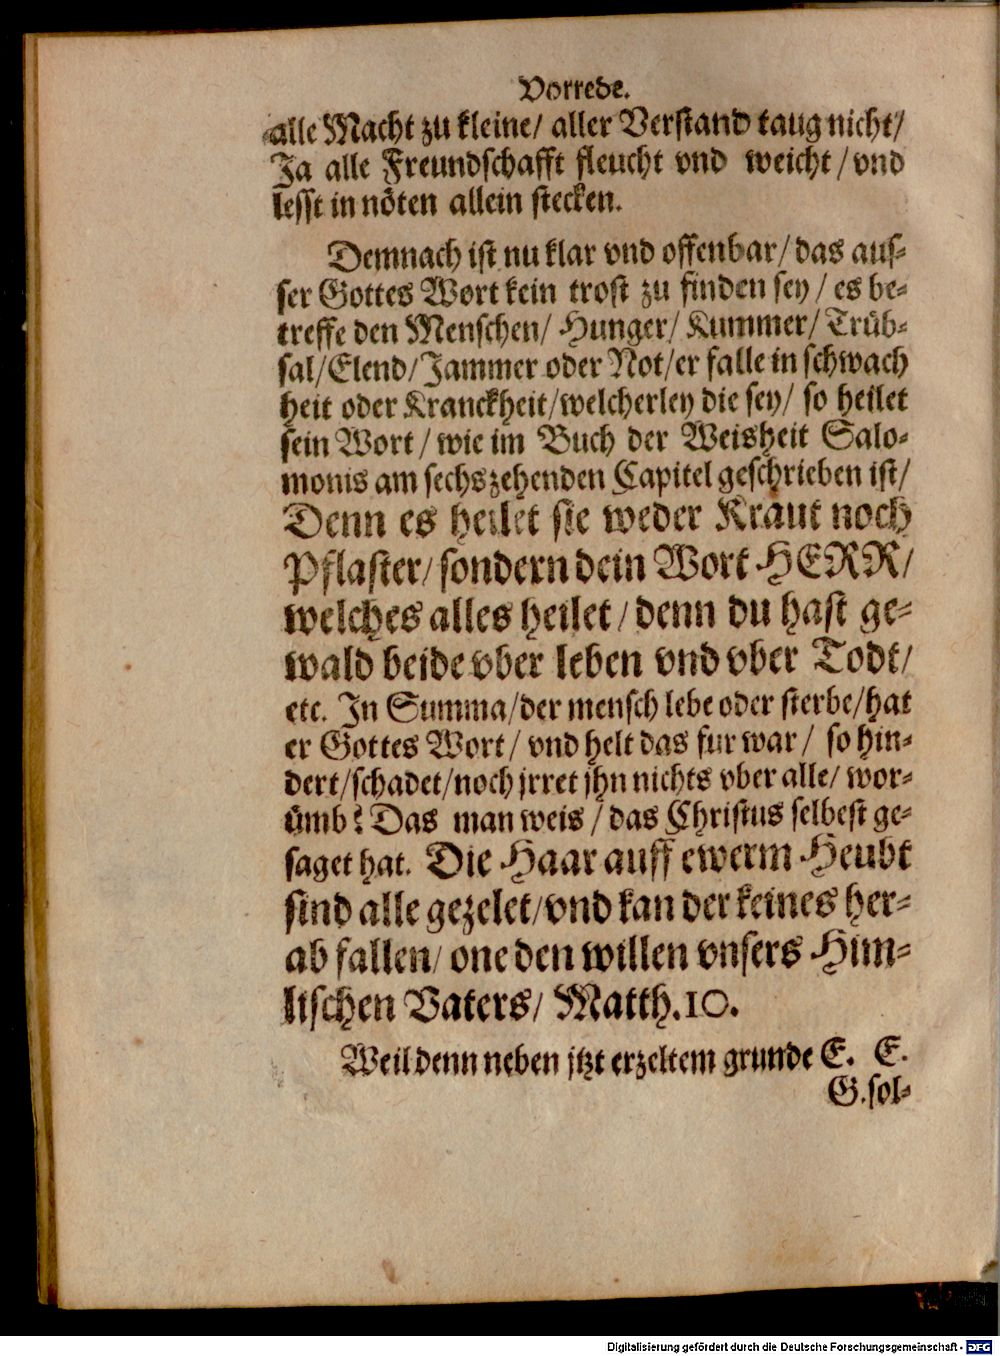 Vorrede.
alle Macht zu kleine/ aller Verstand taug nicht/
Ja alle Freundschafft fleucht vnd weicht/ vnd
lesst in nöten allein stecken.
Demnach ist nu klar vnd offenbar/ das aus-
ser Gottes Wort kein trost zu finden sey/ es be-
treffe den Menschen/ Hunger/ Kummer/ Trüb-
sal/ Elend/ Jammer oder Not/ er falle in schwach
heit oder Kranckheit/ welcherley die sey/ so heilet
sein Wort/ wie im Buch der Weisheit Salo-
monis am sechszehenden Capitel geschrieben ist/
Denn es heilet sie weder Kraut noch
Pflaster/ sondern dein Wort HERR/
welches alles heilet/ denn du hast ge-
wald beide vber leben vnd vber Todt/
etc. In Summa/ der mensch lebe oder sterbe/ hat
er Gottes Wort/ vnd helt das fur war/ so hin-
dert/ schadet/ noch jrret jhn nichts vber alle/ wor-
ümb? Das man weis/ das Christus selbest ge-
saget hat. Die Haar auff ewerm Heubt
sind alle gezelet/ vnd kan der keines her-
ab fallen/ one den willen vnsers Him-
lischen Vaters/ Matth. 10.
Weil denn neben jtzt erzeltem grunde E. E.
G. sol-
Digitalisierung gefördert durch die Deutsche Forschungsgemeinschaft - DFG